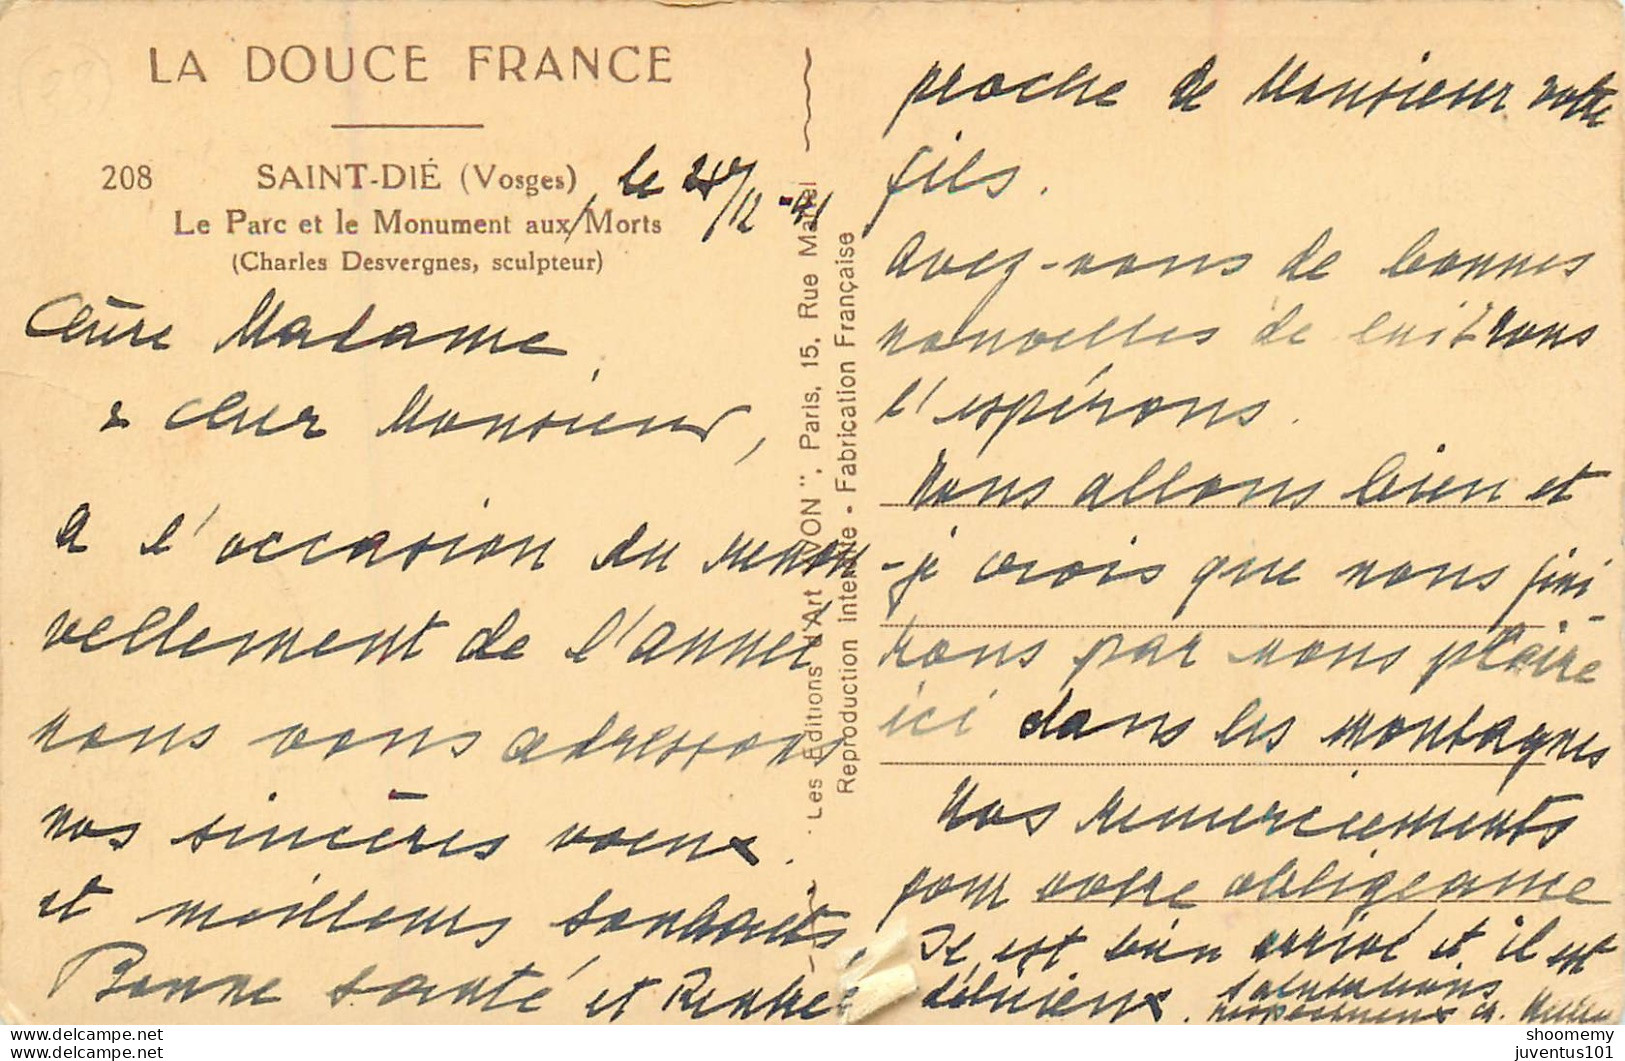 LA DOUCE FRANCE
208 SAINT-DIÉ (Vosges)
Le Parc et le Monument aux Morts
(Charles Desvergnes, sculpteur)
le /12 -41
Chère Madame,
& cher Monsieur,
A l'occasion du renou
vellement de l'année
nous vous adressons
nos sincères voeux.
et meilleurs souhaits,
Bonne santé et Rentrée
Les Éditions d'Art "YVON", Paris, 15, Rue Martel
Reproduction Interdite - Fabrication Française
proche de Monsieur votre
fils.
Avez-vous de bonnes
nouvelles de lui? nous
l'espérons.
Nous allons bien et
je crois que nous fini
rons par nous plaire
ici dans les montagnes
Nos remerciements
pour votre obligeance
Il est bien arrivé et il est
délicieux. Salutations
respectueuses
shoomemy
juventus101
208
208